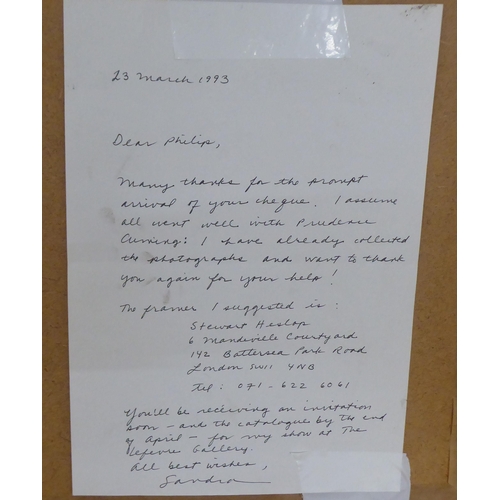 23 March 1993
Dear Philip,
Many thanks for the prompt
arrival of your cheque. I assume
all went well with Prudence
Cuming: I have already collected
the photographs and want to thank
you again for your help!
The framer I suggested is:
Stewart Heslop
6 Mandeville Courtyard
142 Battersea Park Road
London SW11 4NB
Tel: 071-622 6061
You'll be receiving an invitation
soon - and the catalogue by the end
of April - for my show at The
Lefevre Gallery.
All best wishes,
Sandra